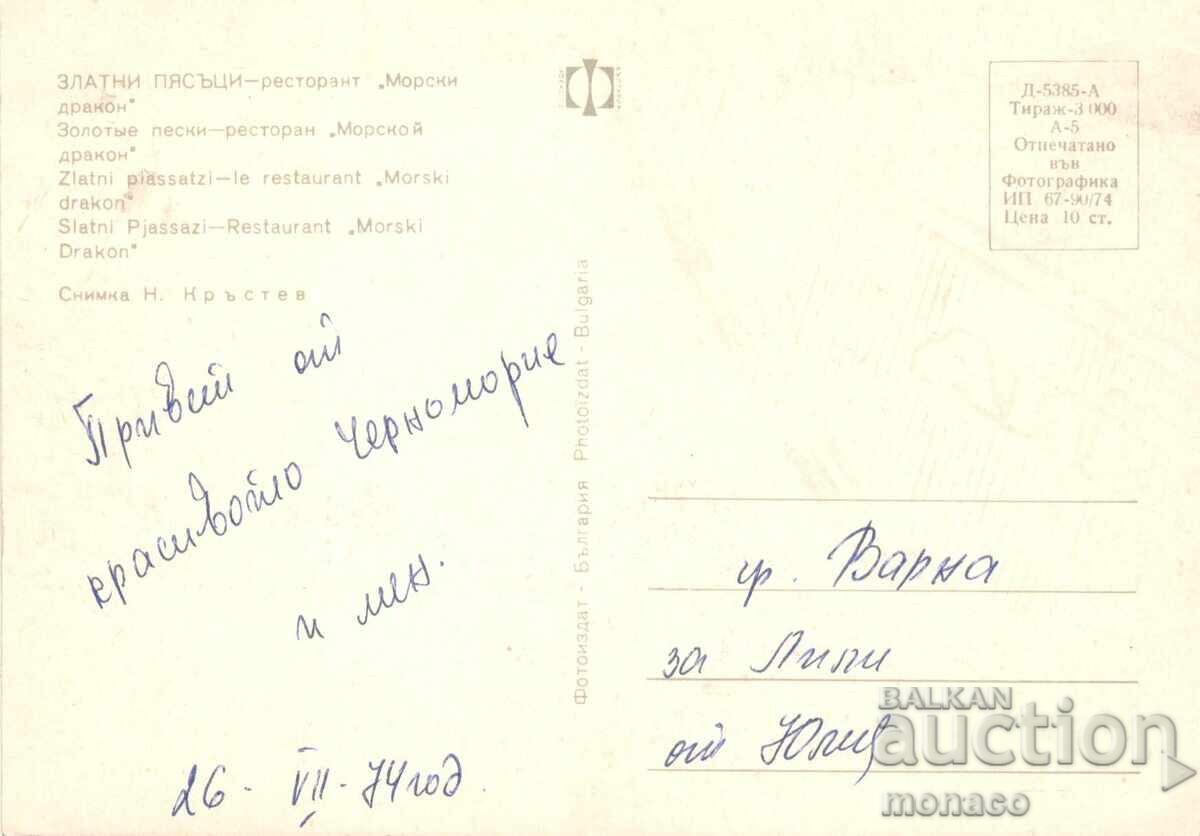 ЗЛАТНИ ПЯСЪЦИ—ресторант „Морски
дракон"
Золотые пески—ресторан „Морской
дракон"
Zlatni piassatzi—le restaurant „Morski
drakon"
Slatni Pjassazi—Restaurant „Morski
Drakon"
Снимка Н. Кръстев
Привет от
красивото Черноморие
и мен.
26 - VII - 74 год.
Фотоиздат - България Photoizdat - Bulgaria
Д-5385-А
Тираж-3 000
А-5
Отпечатано
във
Фотографика
ИП 67-90/74
Цена 10 ст.
гр. Варна
за Лили
от Юлия
BALKAN
auction
monaco